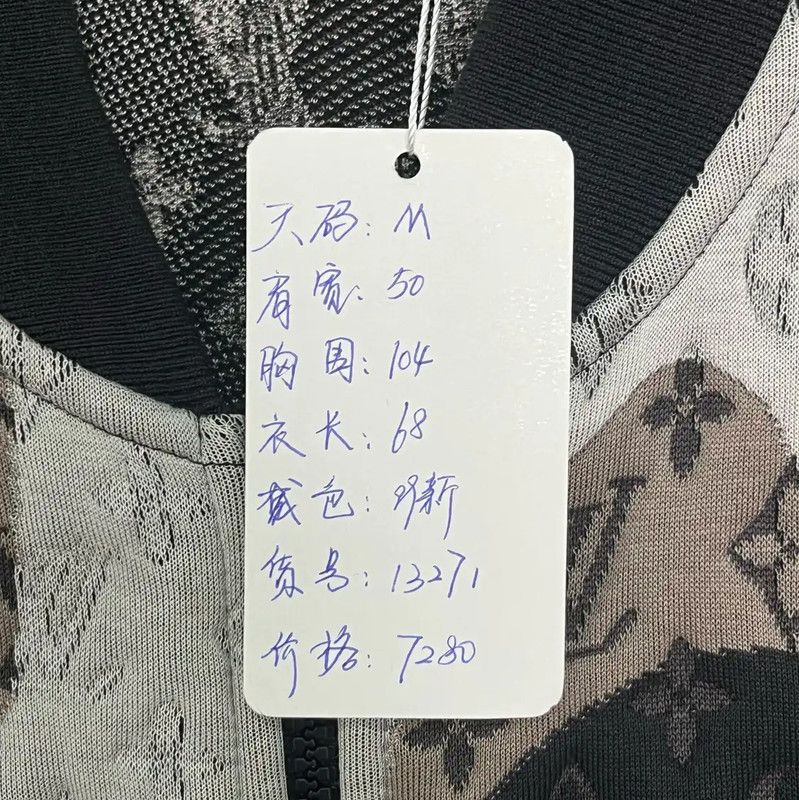 尺码：M
肩宽：50
胸围：104
衣长：68
成色：99新
货号：13271
价格：7280
LV